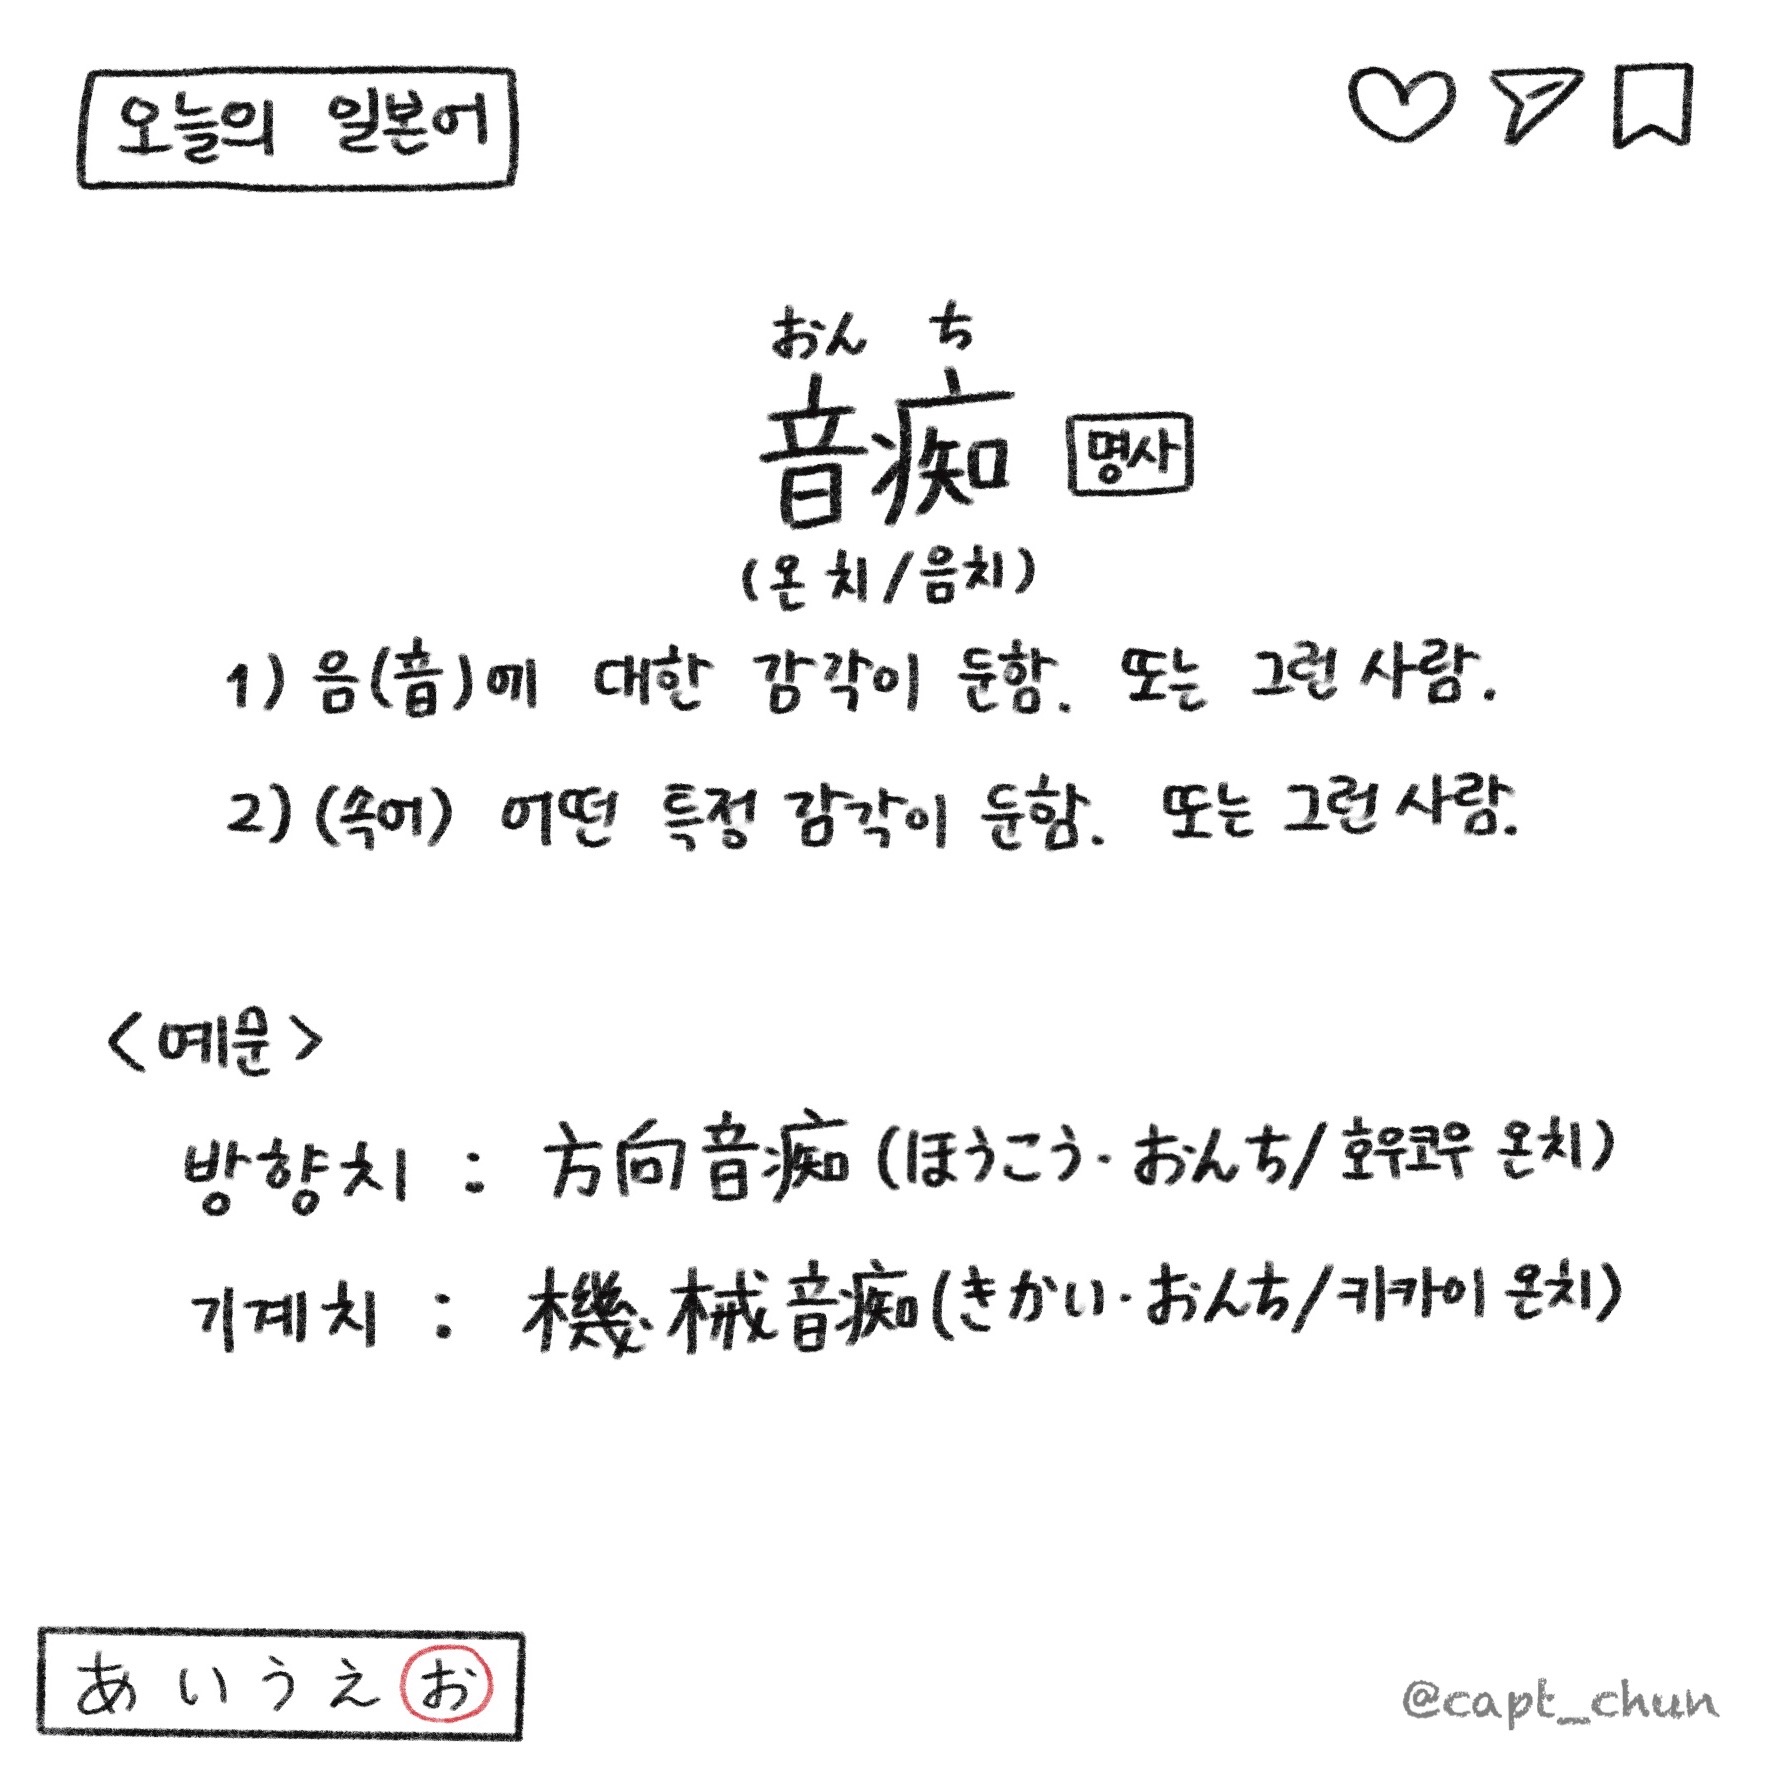 오늘의 일본어
おん ち
音痴 명사
(온 치/음치)
1) 음(音)에 대한 감각이 둔함. 또는 그런 사람.
2) (속어) 어떤 특정 감각이 둔함. 또는 그런 사람.
<예문>
방향치 : 方向音痴(ほうこう·おんち/호우코우 온치)
기계치 : 機械音痴(きかい·おんち/키카이 온치)
あいうえお
@capt_chun